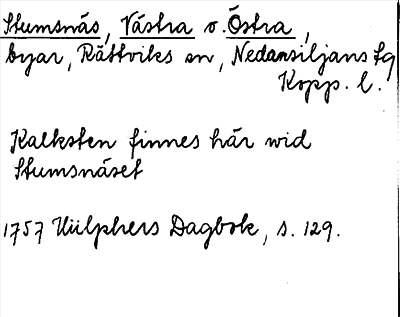 Stumsnäs, Västra o. Östra,
byar, Rättviks sn, Nedansiljans fg
Kopp. l.
Kalksten finnes här wid
Stumsnäset
1757 Hülphers Dagbok, s. 129.